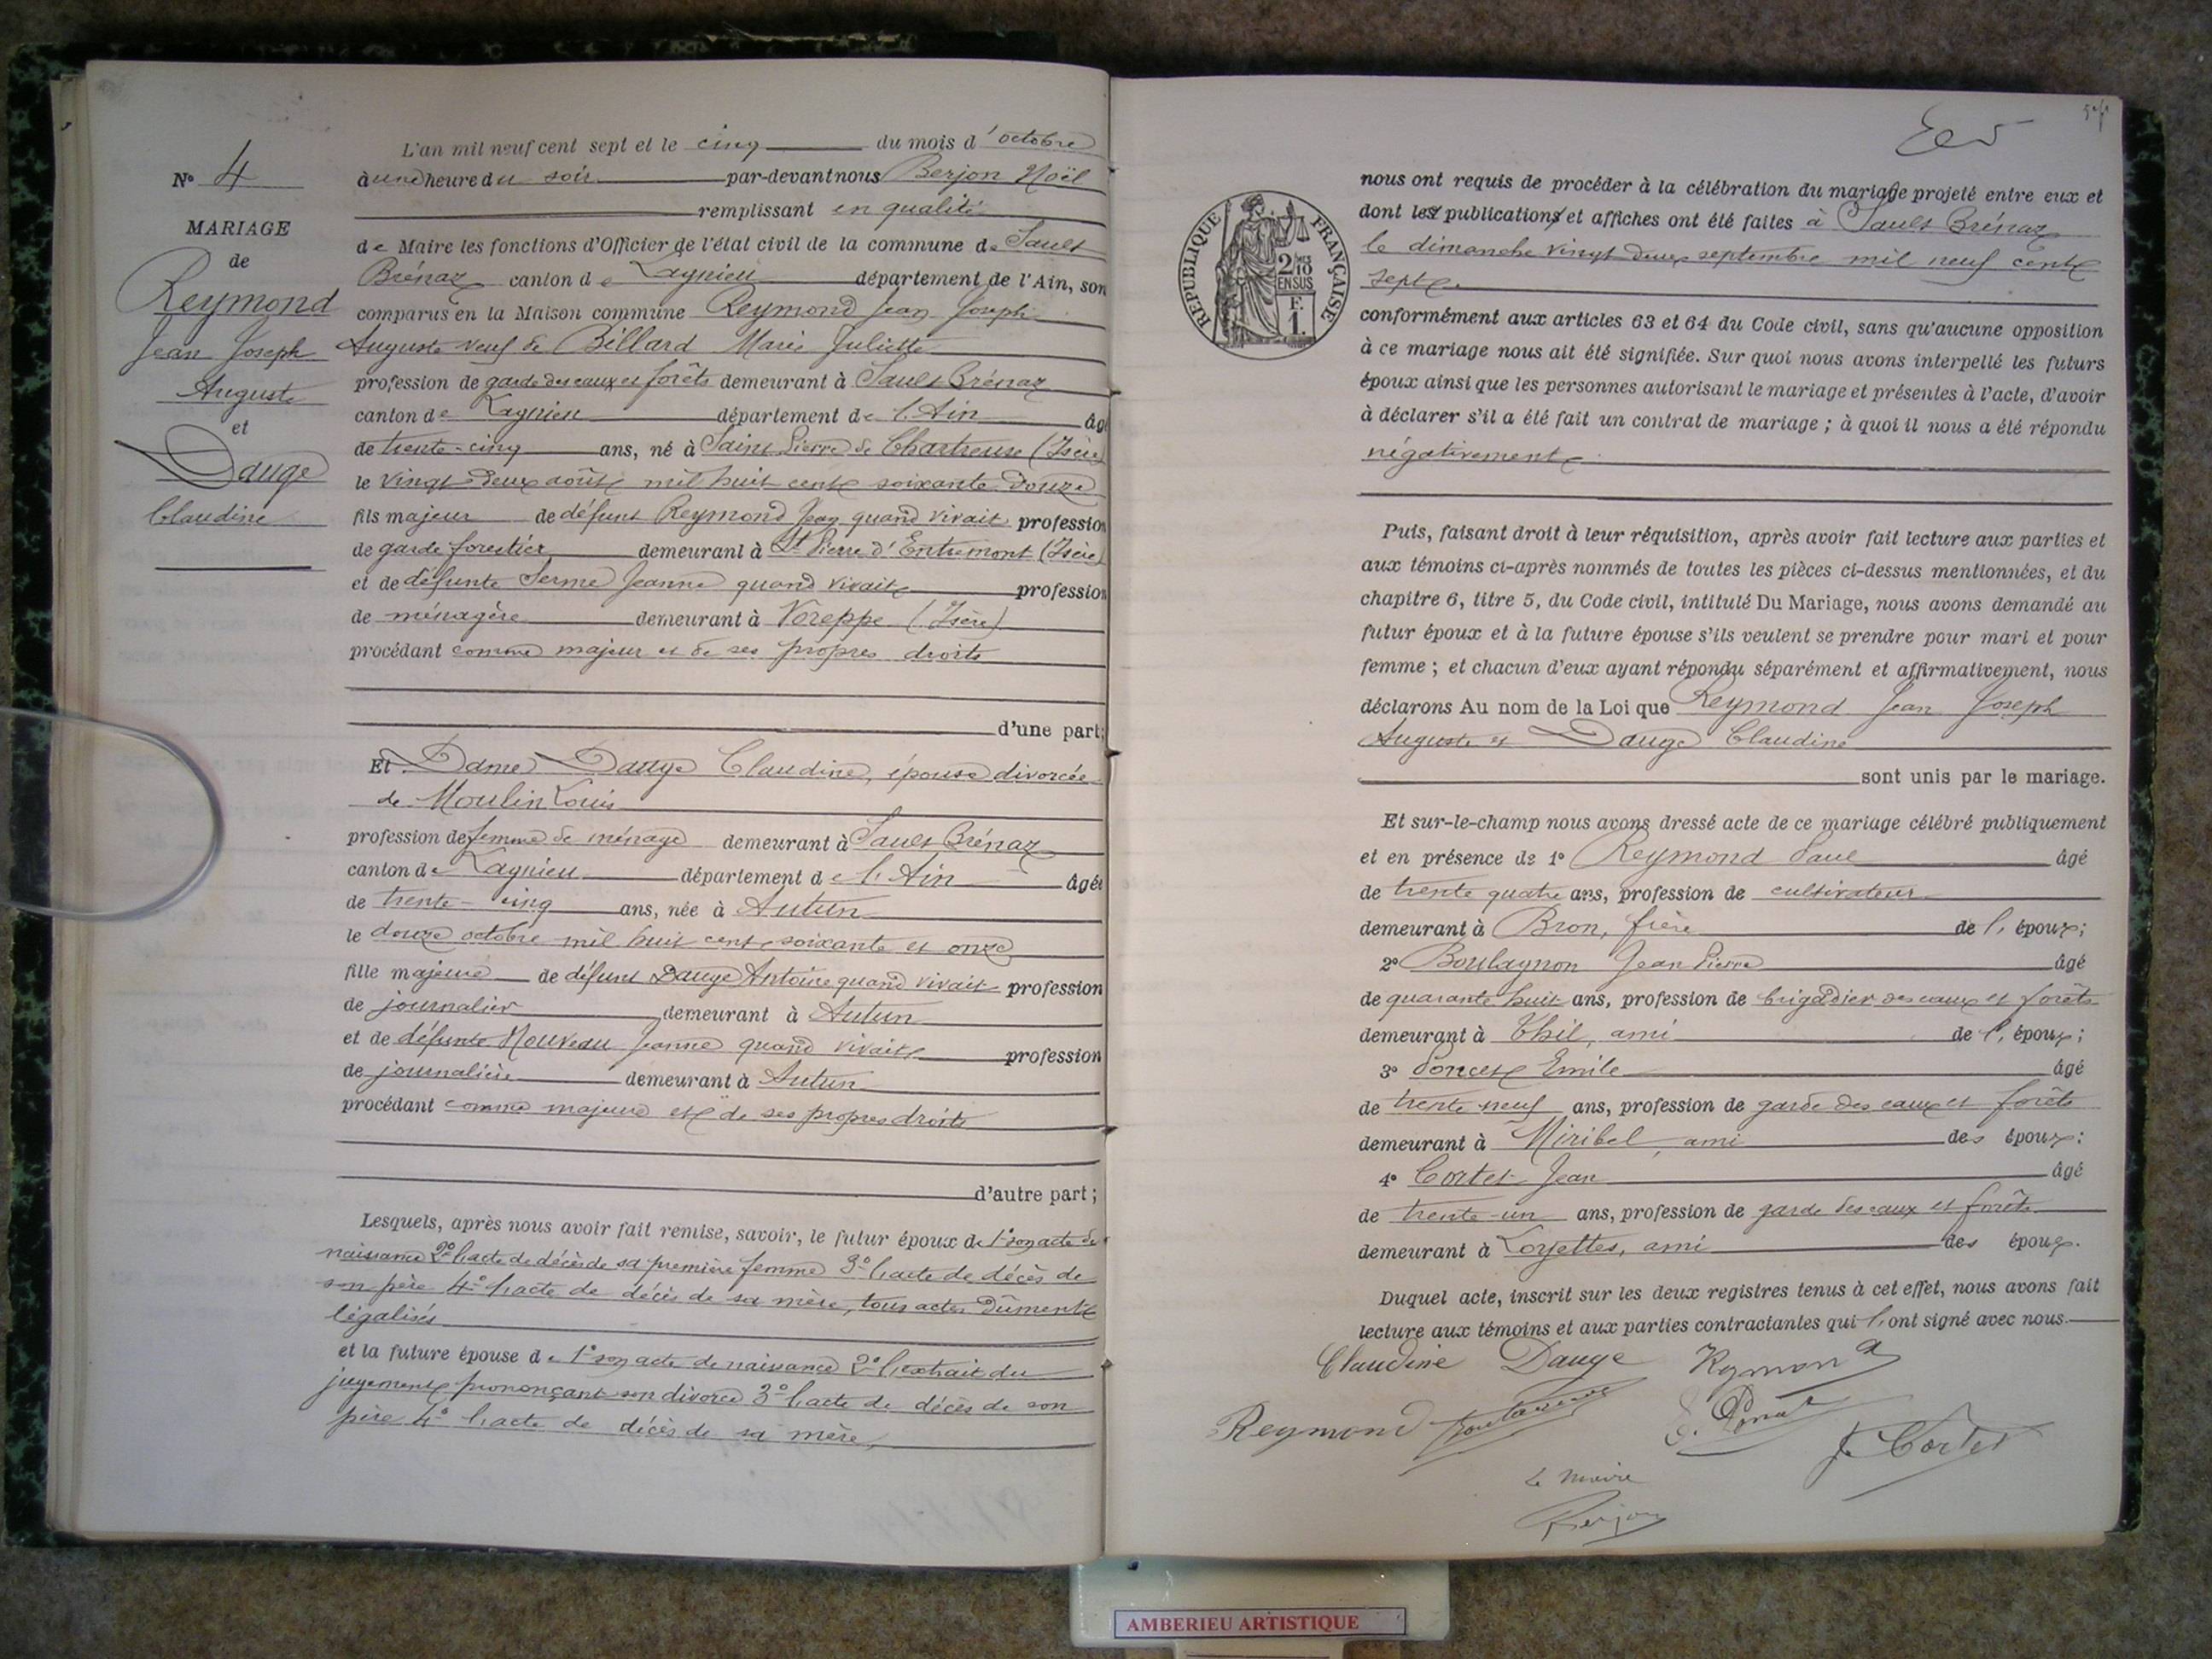 N° 4
MARIAGE
de
Reymond
Jean Joseph
Auguste
et
Dauge
Claudine
L'an mil neuf cent sept et le cinq du mois d'octobre
à une heure du soir par-devant nous Berjon Noël
remplissant en qualité
de Maire les fonctions d'Officier de l'état civil de la commune de Sault
Brénaz canton de Lagnieu département de l'Ain, son
comparus en la Maison commune Reymond Jean Joseph
Auguste veuf de Billard Marie Juliette
profession de garde des eaux et forêts demeurant à Sault Brénaz
canton de Lagnieu département de l'Ain âgé
de trente-cinq ans, né à Saint Pierre de Chartreuse (Isère)
le vingt deux août mil huit cent soixante douze
fils majeur de défunt Reymond Jean quand vivait profession
de garde forestier demeurant à St Pierre d'Entremont (Isère)
et de défunte Jeanne quand vivait profession
de ménagère demeurant à Voreppe (Isère)
procédant comme majeur et de ses propres droits
d'une part;
Et Dame Dauge Claudine, épouse divorcée
de Moulin Louis
profession de femme de ménage demeurant à Sault Brénaz
canton de Lagnieu département de l'Ain âgée
de trente-cinq ans, née à Autun
le douze octobre mil huit cent soixante et onze
fille majeure de défunt Dauge Antoine quand vivait profession
de journalier demeurant à Autun
et de défunte Nouveau Jeanne quand vivait profession
de journalière demeurant à Autun
procédant comme majeure et de ses propres droits
d'autre part;
Lesquels, après nous avoir fait remise, savoir, le futur époux de 1° son acte de
naissance 2° l'acte de décès de sa première femme 3° l'acte de décès de
son père 4° l'acte de décès de sa mère, tous actes dûment
légalisés
et la future épouse de 1° son acte de naissance 2° l'extrait du
jugement prononçant son divorce 3° l'acte de décès de son
père 4° l'acte de décès de sa mère,
RÉPUBLIQUE FRANÇAISE
2/10
EN SUS
F.
1.
nous ont requis de procéder à la célébration du mariage projeté entre eux et
dont les publications et affiches ont été faites à Sault Brénaz
le dimanche vingt deux septembre mil neuf cent
sept.
conformément aux articles 63 et 64 du Code civil, sans qu'aucune opposition
à ce mariage nous ait été signifiée. Sur quoi nous avons interpellé les futurs
époux ainsi que les personnes autorisant le mariage et présentes à l'acte, d'avoir
à déclarer s'il a été fait un contrat de mariage ; à quoi il nous a été répondu
négativement.
Puis, faisant droit à leur réquisition, après avoir fait lecture aux parties et
aux témoins ci-après nommés de toutes les pièces ci-dessus mentionnées, et du
chapitre 6, titre 5, du Code civil, intitulé Du Mariage, nous avons demandé au
futur époux et à la future épouse s'ils veulent se prendre pour mari et pour
femme ; et chacun d'eux ayant répondu séparément et affirmativement, nous
déclarons Au nom de la Loi que Reymond Jean Joseph
Auguste et Dauge Claudine
sont unis par le mariage.
Et sur-le-champ nous avons dressé acte de ce mariage célébré publiquement
et en présence de 1° Reymond Paul âgé
de trente quatre ans, profession de cultivateur
demeurant à Bron, frère de l'époux;
2° Boulagnon Jean Pierre âgé
de quarante huit ans, profession de brigadier des eaux et forêts
demeurant à Thil, ami de l'époux;
3° Poncet Emile âgé
de trente neuf ans, profession de garde des eaux et forêts
demeurant à Miribel, ami des époux;
4° Cortet Jean âgé
de trente-un ans, profession de garde des eaux et forêts
demeurant à Loyettes, ami des époux.
Duquel acte, inscrit sur les deux registres tenus à cet effet, nous avons fait
lecture aux témoins et aux parties contractantes qui l'ont signé avec nous.
Claudine Dauge Reymond
Reymond
J. Cortet
Le Maire
Berjon
AMBERIEU ARTISTIQUE